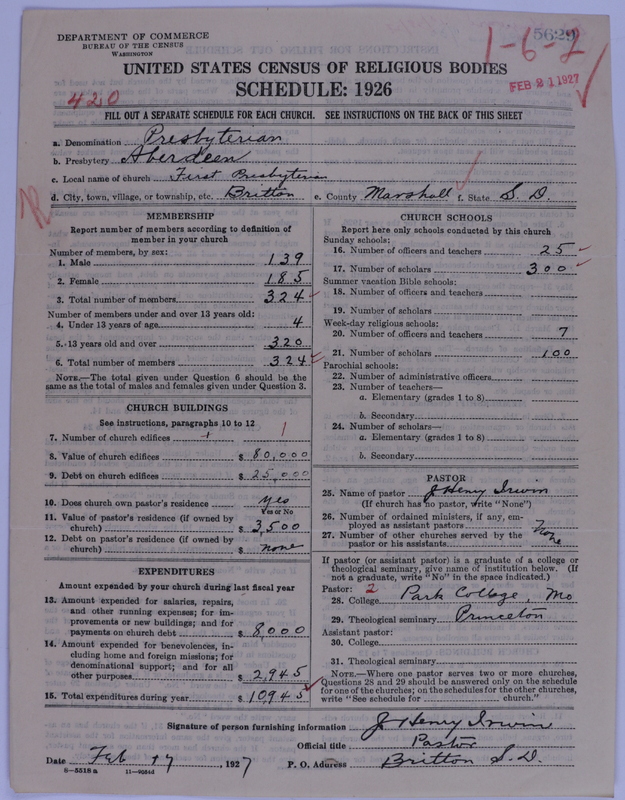 DEPARTMENT OF COMMERCE
BUREAU OF THE CENSUS
WASHINGTON
5629
1-6-2
UNITED STATES CENSUS OF RELIGIOUS BODIES
SCHEDULE: 1926
FEB 21 1927
420
FILL OUT A SEPARATE SCHEDULE FOR EACH CHURCH. SEE INSTRUCTIONS ON THE BACK OF THIS SHEET
a. Denomination Presbyterian
b. Presbytery Aberdeen
c. Local name of church First Presbyterian
d. City, town, village, or township, etc. Britton e. County Marshall f. State S. D.
MEMBERSHIP
Report number of members according to definition of
member in your church
Number of members, by sex:
1. Male 139
2. Female 185
3. Total number of members 324
Number of members under and over 13 years old:
4. Under 13 years of age 4
5. 13 years old and over 320
6. Total number of members 324
NOTE.—The total given under Question 6 should be the
same as the total of males and females given under Question 3.
CHURCH BUILDINGS
See instructions, paragraphs 10 to 12
7. Number of church edifices 1 1
8. Value of church edifices $ 80,000
9. Debt on church edifices $ 25,000
10. Does church own pastor's residence yes
Yes or No
11. Value of pastor's residence (if owned by
church) $ 3,500
12. Debt on pastor's residence (if owned by
church) $ none
EXPENDITURES
Amount expended by your church during last fiscal year
13. Amount expended for salaries, repairs,
and other running expenses; for im-
provements or new buildings; and for
payments on church debt $ 8,000
14. Amount expended for benevolences, in-
cluding home and foreign missions; for
denominational support; and for all
other purposes $ 2,945
15. Total expenditures during year $ 10945
CHURCH SCHOOLS
Report here only schools conducted by this church
Sunday schools:
16. Number of officers and teachers 25
17. Number of scholars 300
Summer vacation Bible schools:
18. Number of officers and teachers
19. Number of scholars
Week-day religious schools:
20. Number of officers and teachers 7
21. Number of scholars 100
Parochial schools:
22. Number of administrative officers
23. Number of teachers—
a. Elementary (grades 1 to 8)
b. Secondary
24. Number of scholars—
a. Elementary (grades 1 to 8)
b. Secondary
PASTOR
25. Name of pastor J Henry Irwin
(If church has no pastor, write "None")
26. Number of ordained ministers, if any, em-
ployed as assistant pastors
27. Number of other churches served by the
pastor or his assistants none
If pastor (or assistant pastor) is a graduate of a college or
theological seminary, give name of institution below. (If
not a graduate, write "No" in the space indicated.)
Pastor: 2
28. College Park College, Mo
29. Theological seminary Princeton
Assistant pastor:
30. College
31. Theological seminary
NOTE.—Where one pastor serves two or more churches,
Questions 28 and 29 should be answered only on the schedule
for one of the churches; on the schedules for the other churches,
write "See schedule for church."
Signature of person furnishing information J Henry Irwin
Official title Pastor
Date Feb 17, 1927 P. O. Address Britton S. D.
8—5518 a